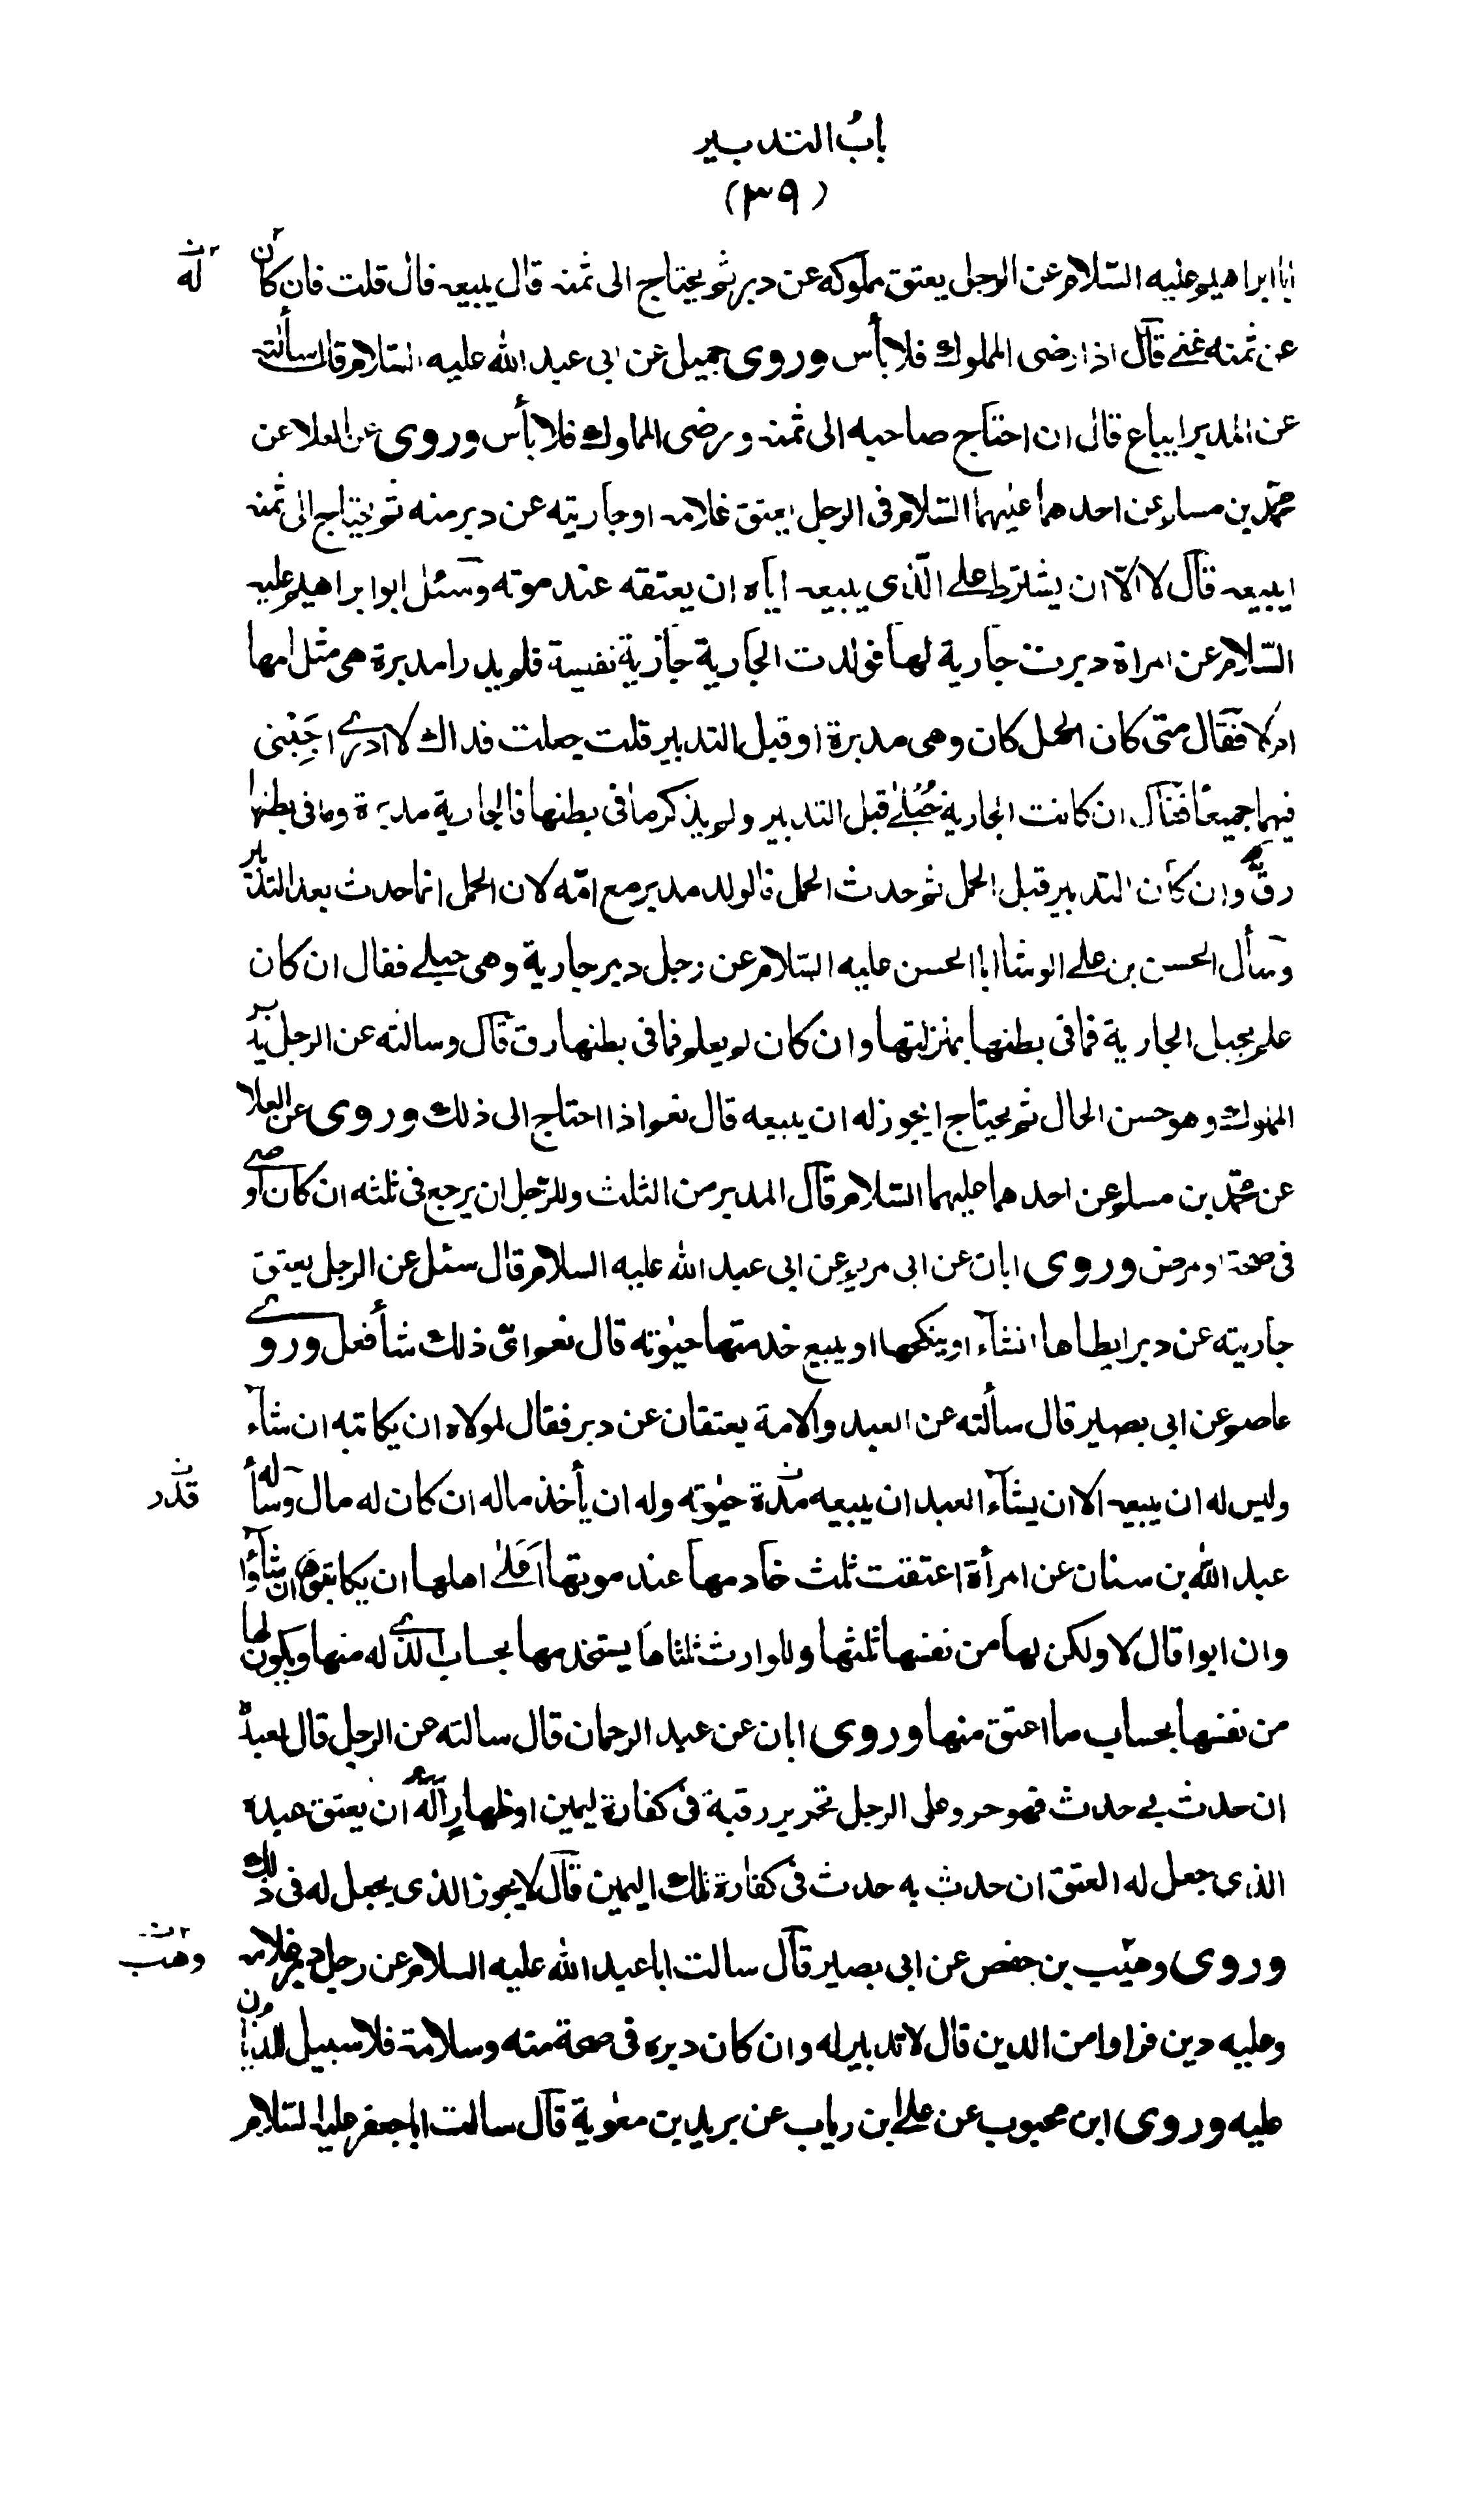 باب التدبير
(٣٩)
ابا ابراهيم عليه السّلام عن الرجل يعتق مملوكه عن دبر ثم يحتاج الى ثمنه قال يبيعه قال قلت فان كان
له
عن ثمنه غنى قال اذا رضى المملوك فلا بأس وروى جميل عن ابى عبد الله عليه السّلام قال سألته
عن المدبر ايباع قال ان احتاج صاحبه الى ثمنه ورضى المملوك فلا بأس وروى عن العلا عن
محمّد بن مسلم عن احدهما عليهما السّلام فى الرجل يعتق غلامه او جاريته عن دبر منه ثم يحتاج الى ثمنه
ايبيعه قال لا الّا ان يشترط على الّذى يبيعه اياه ان يعتقه عند موته وسئل ابو ابراهيم عليه
السّلام عن امراة دبرت جارية لها فولدت الجارية جارية نفيسة فلم يدر امدبرة هى مثل امها
ام لا فقال متى كان الحمل كان وهى مدبرة او قبل التدبير قلت جعلت فداك لا ادرى اجبنى
فيهما جميعًا فقال ان كانت الجارية حُبلى قبل التدبير ولم يذكر ما فى بطنها فالجارية مدبرة وما فى بطنها
رقّ وان كان التدبير قبل الحمل ثم حدث الحمل فالولد مدبر مع امّه لان الحمل انما حدث بعد التدبير
وسأل الحسن بن على الوشا ابا الحسن عليه السّلام عن رجل دبر جارية وهى حبلى فقال ان كان
علم بحبل الجارية فما فى بطنها بمنزلتها وان كان لم يعلم فما فى بطنها رق قال وسالته عن الرجل يدبر
المملوك وهو حسن الحال ثم يحتاج ايجوز له ان يبيعه قال نعم اذا احتاج الى ذلك وروى عن العلا
عن محمّد بن مسلم عن احدهما عليهما السّلام قال المدبر من الثلث وللرّجل ان يرجع فى ثلثه ان كان اوصى
فى صحة او مرض وروى ابان عن ابى مريم عن ابى عبد الله عليه السلام قال سئل عن الرجل يعتق
جاريته عن دبر ايطاها انشآء او ينكحها او يبيع خدمتها حيٰوته قال نعم اىّ ذلك شأ فعل وروى
عاصم عن ابى بصير قال سألته عن العبد والامة يعتقان عن دبر فقال لمولاه ان يكاتبه ان شآء
وليس له ان يبيعه الا ان يشآء العبد ان يبيعه مدّة حيٰوته وله ان يأخذ ماله ان كان له مال وسأله
قدر
عبد الله بن سنان عن امرأة اعتقت ثلث خادمها عند موتها اعلى اهلها ان يكاتبوها ان شآؤا
وان ابوا قال لا ولكن لها من نفسها ثلثها وللوارث ثلثاها يستخدمها بحساب الذى له منها ويكون لها
من نفسها بحساب ما اعتق منها وروى ابان عن عبد الرحمان قال سالته عن الرجل قال لعبده
ان حدث بى حدث فهو حر وعلى الرجل تحرير رقبة فى كفارة ليمين او ظهارٍ اله ان يعتق عبده
الذى جعل له العتق ان حدث به حدث فى كفارة تلك اليمين قال لا يجوز الذى يجعل له فى ذلك
وروى وهيب بن حفص عن ابى بصير قال سالت ابا عبد الله عليه السلام عن رجل دبر غلامه
وهب
وعليه دين فرارا من الدين قال لا تدبير له وان كان دبره فى صحة منه وسلامة فلا سبيل للديان
عليه وروى ابن محبوب عن على ابن رياب عن بريد بن معٰوية قال سالت ابا جعفر عليه السّلام